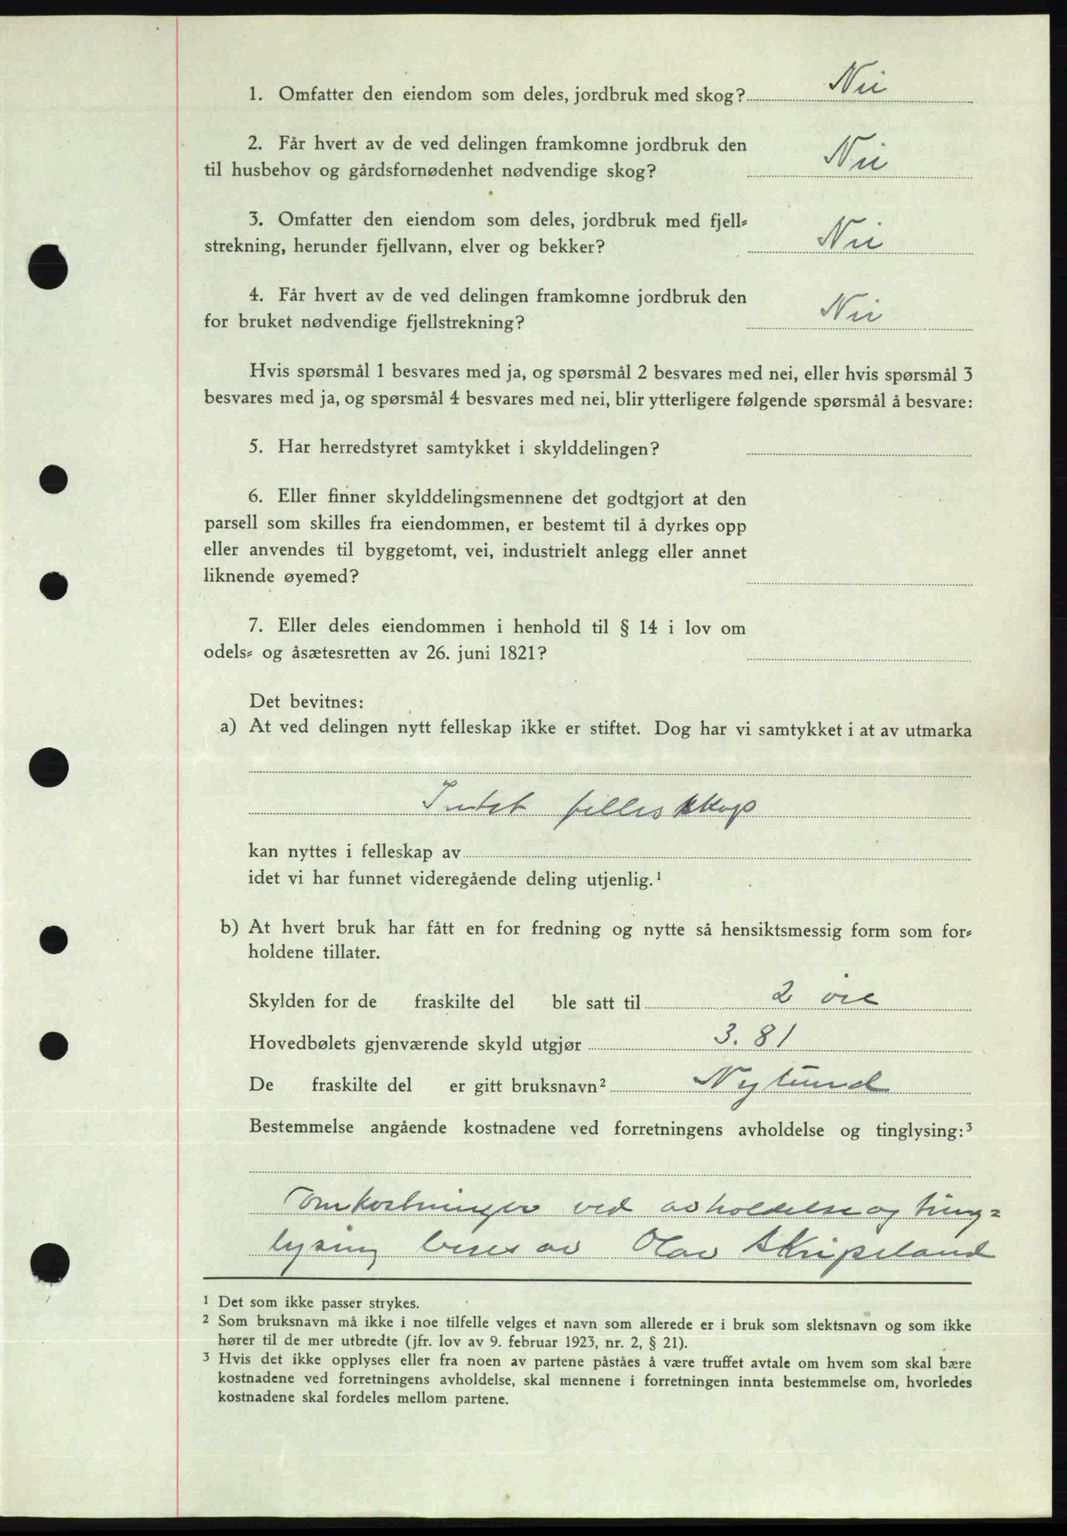 1. Omfatter den eiendom som deles, jordbruk med skog? Nei
2. Får hvert av de ved delingen framkomne jordbruk den
til husbehov og gårdsfornødenhet nødvendige skog? Nei
3. Omfatter den eiendom som deles, jordbruk med fjell-
strekning, herunder fjellvann, elver og bekker? Nei
4. Får hvert av de ved delingen framkomne jordbruk den
for bruket nødvendige fjellstrekning? Nei
Hvis spørsmål 1 besvares med ja, og spørsmål 2 besvares med nei, eller hvis spørsmål 3
besvares med ja, og spørsmål 4 besvares med nei, blir ytterligere følgende spørsmål å besvare:
5. Har herredstyret samtykket i skylddelingen?
6. Eller finner skylddelingsmennene det godtgjort at den
parsell som skilles fra eiendommen, er bestemt til å dyrkes opp
eller anvendes til byggetomt, vei, industrielt anlegg eller annet
liknende øyemed?
7. Eller deles eiendommen i henhold til § 14 i lov om
odels- og åsætesretten av 26. juni 1821?
Det bevitnes:
a) At ved delingen nytt felleskap ikke er stiftet. Dog har vi samtykket i at av utmarka
Intet felles skap
kan nyttes i felleskap av
idet vi har funnet videregående deling utjenlig.¹
b) At hvert bruk har fått en for fredning og nytte så hensiktsmessig form som for-
holdene tillater.
Skylden for de fraskilte del ble satt til 2 øre
Hovedbølets gjenværende skyld utgjør 3.81
De fraskilte del er gitt bruksnavn² Nylund
Bestemmelse angående kostnadene ved forretningens avholdelse og tinglysing:³
Omkostninger ved avholdelse og ting=
lysing beres av Olav Skripeland
¹ Det som ikke passer strykes.
² Som bruksnavn må ikke i noe tilfelle velges et navn som allerede er i bruk som slektsnavn og som ikke
hører til de mer utbredte (jfr. lov av 9. februar 1923, nr. 2, § 21).
³ Hvis det ikke opplyses eller fra noen av partene påståes å være truffet avtale om hvem som skal bære
kostnadene ved forretningens avholdelse, skal mennene i forretningen innta bestemmelse om, hvorledes
kostnadene skal fordeles mellom partene.